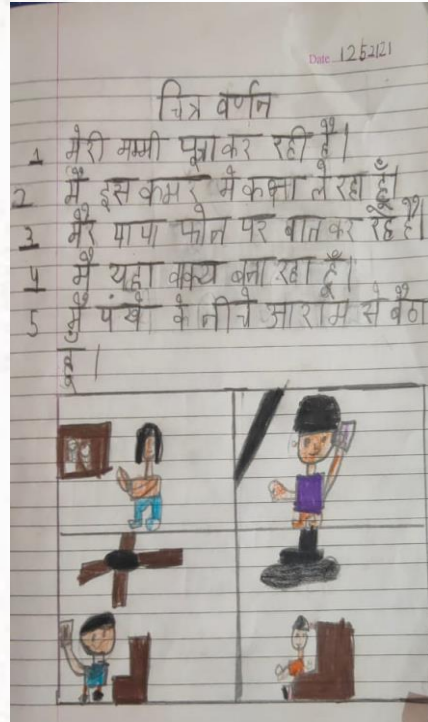 Date 1252121
चित्र वर्णन
1 मेरी मम्मी पूजा कर रही है।
2 मैं इस कमरे में कक्षा ले रहा हूँ।
3 मेरे पापा फोन पर बात कर रहे है।
4 मैं यहा वाक्य बना रहा हूँ।
5 मैं पंखे के नीचे आराम से बैठा
हूं।